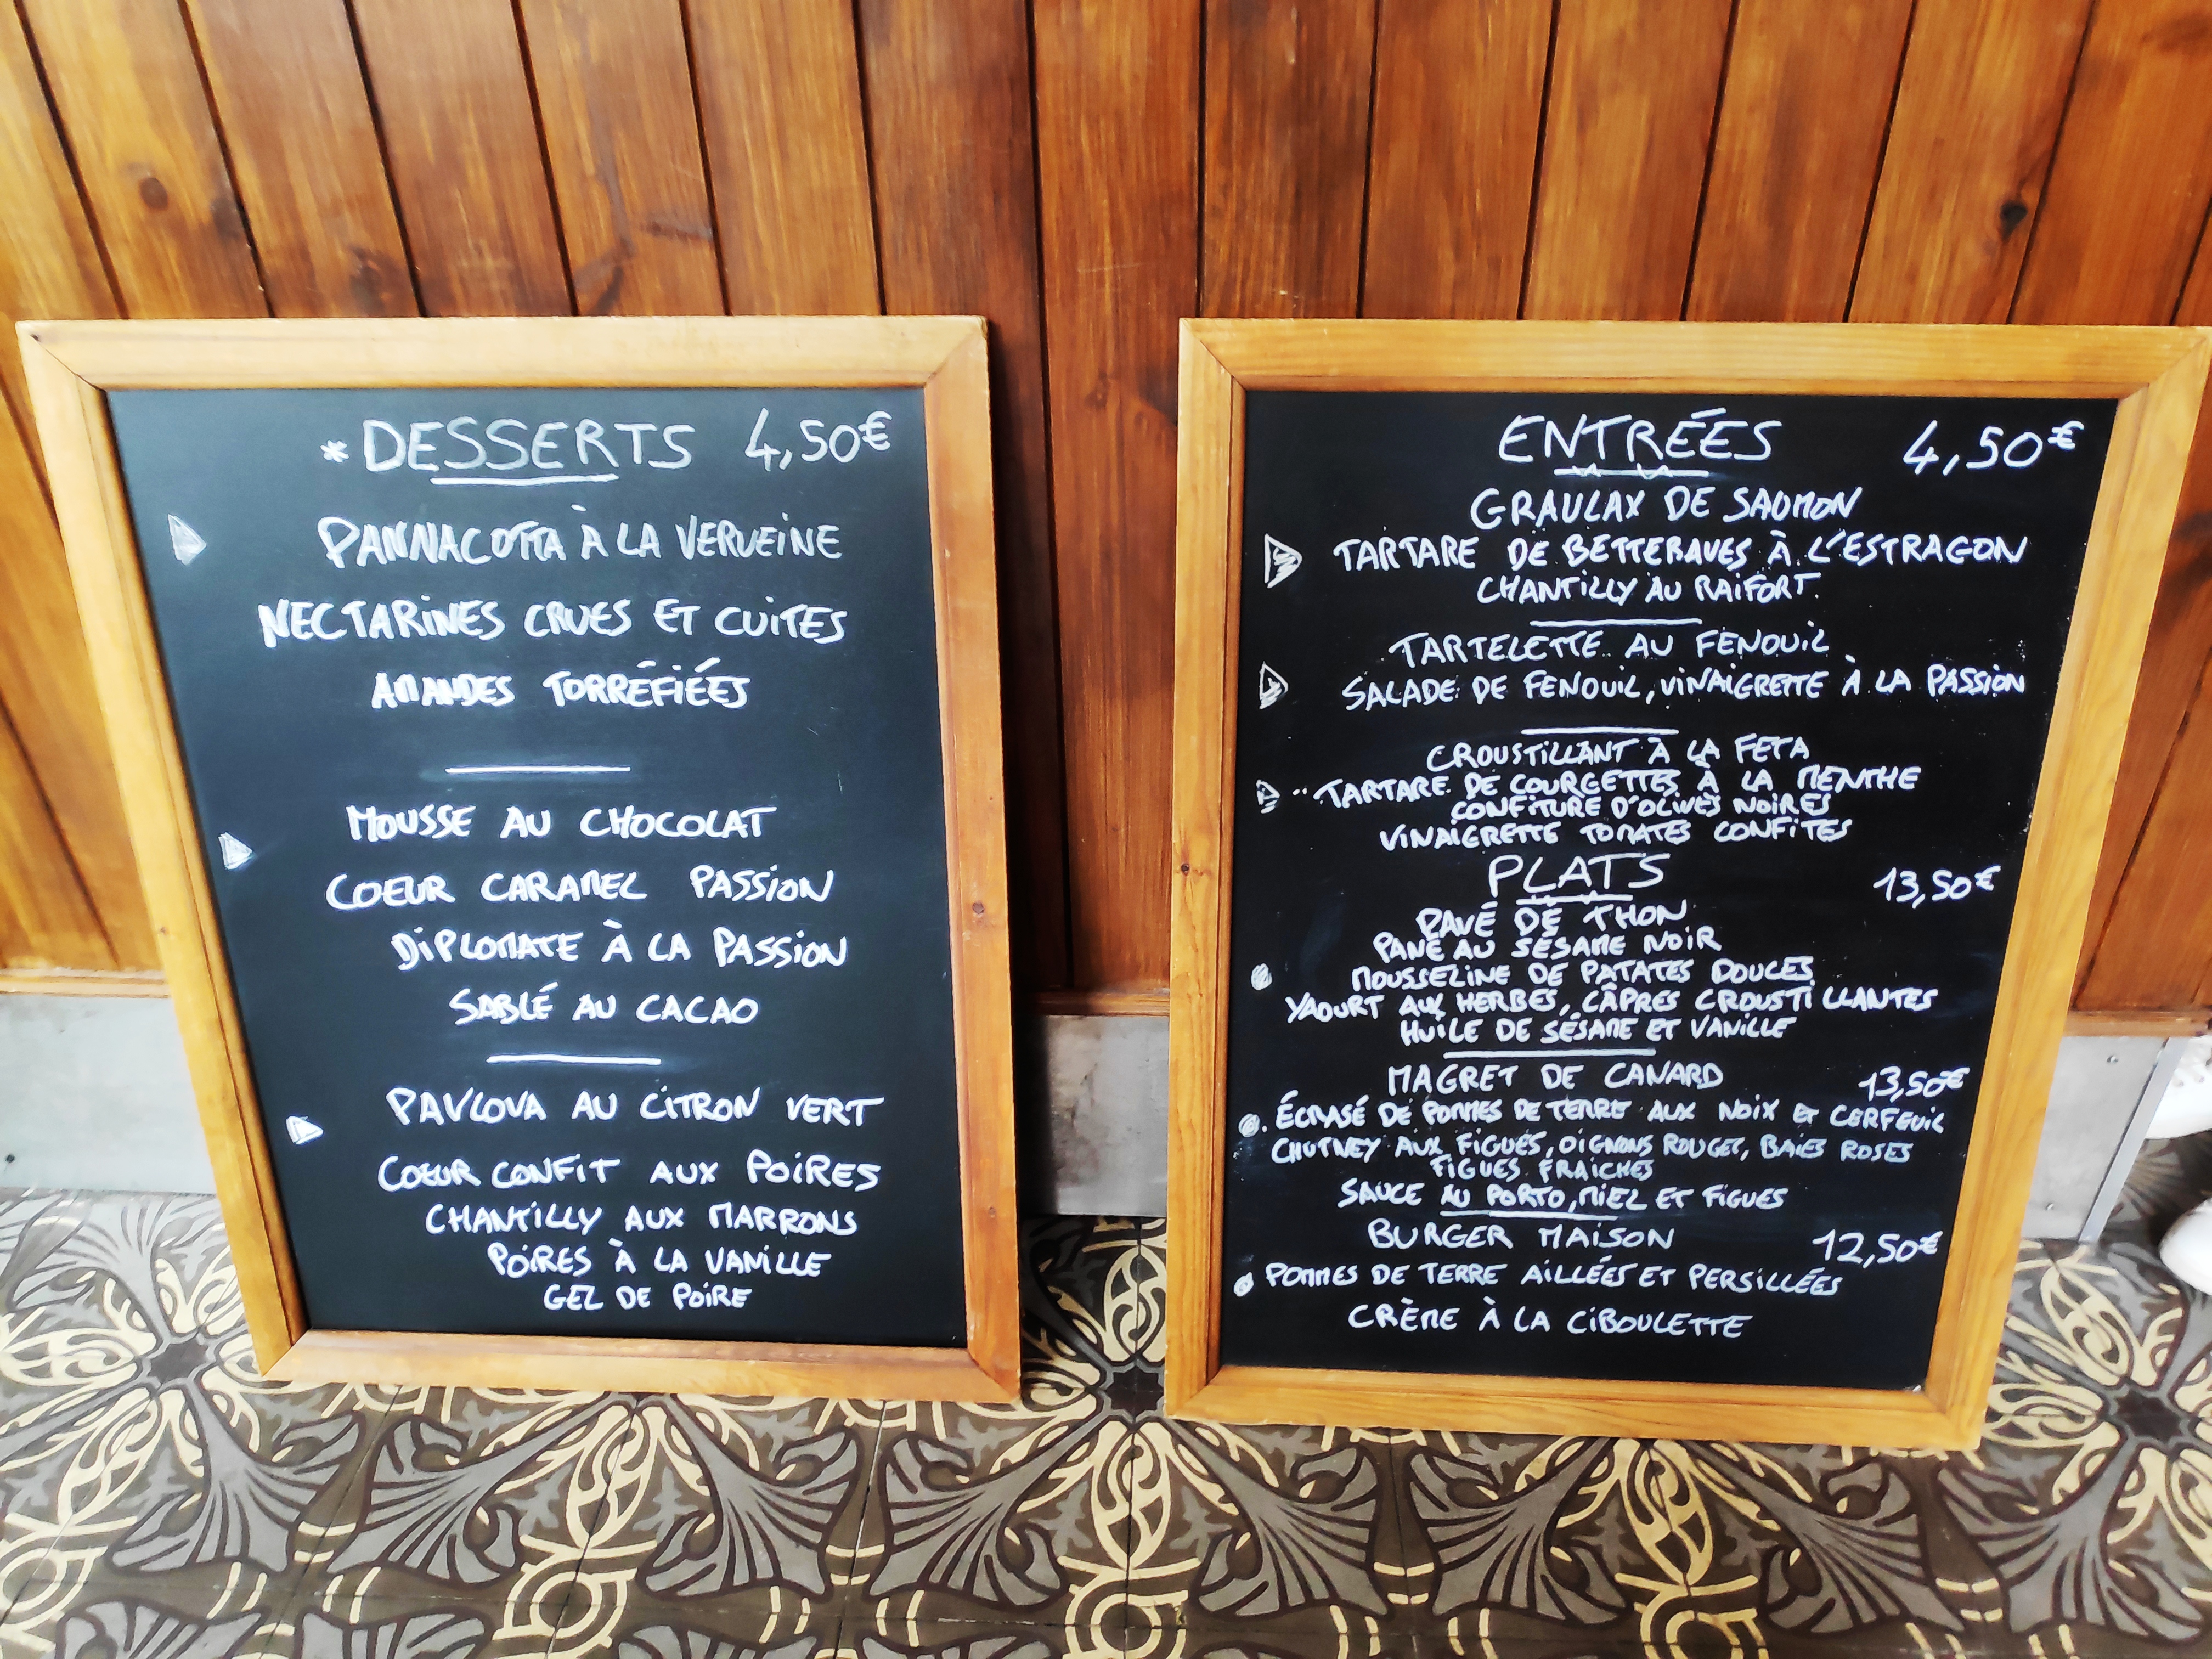 *DESSERTS 4,50€
PANNACOTTA À LA VERVEINE
NECTARINES CRUES ET CUITES
AMANDES TORRÉFIÉES
MOUSSE AU CHOCOLAT
COEUR CARAMEL PASSION
DIPLOMATE À LA PASSION
SABLÉ AU CACAO
PAVLOVA AU CITRON VERT
COEUR CONFIT AUX POIRES
CHANTILLY AUX MARRONS
POIRES À LA VANILLE
GEL DE POIRE
ENTRÉES 4,50€
GRAULAX DE SAUMON
TARTARE DE BETTERAVES À L'ESTRAGON
CHANTILLY AU RAIFORT.
TARTELETTE AU FENOUIL
SALADE DE FENOUIL, VINAIGRETTE À LA PASSION
CROUSTILLANT À LA FETA
TARTARE DE COURGETTES À LA MENTHE
CONFITURE D'OLIVES NOIRES
VINAIGRETTE TOMATES CONFITES
PLATS 13,50€
PAVÉ DE THON
PANÉ AU SÉSAME NOIR
MOUSSELINE DE PATATES DOUCES
YAOURT AUX HERBES, CÂPRES CROUSTILLANTES
HUILE DE SÉSAME ET VANILLE
MAGRET DE CANARD 13,50€
ÉCRASÉ DE POMMES DE TERRE AUX NOIX ET CERFEUIL
CHUTNEY AUX FIGUES, OIGNONS ROUGES, BAIES ROSES
FIGUES FRAICHES
SAUCE AU PORTO, MIEL ET FIGUES
BURGER MAISON 12,50€
POMMES DE TERRE AILLÉES ET PERSILLÉES
CRÈME À LA CIBOULETTE